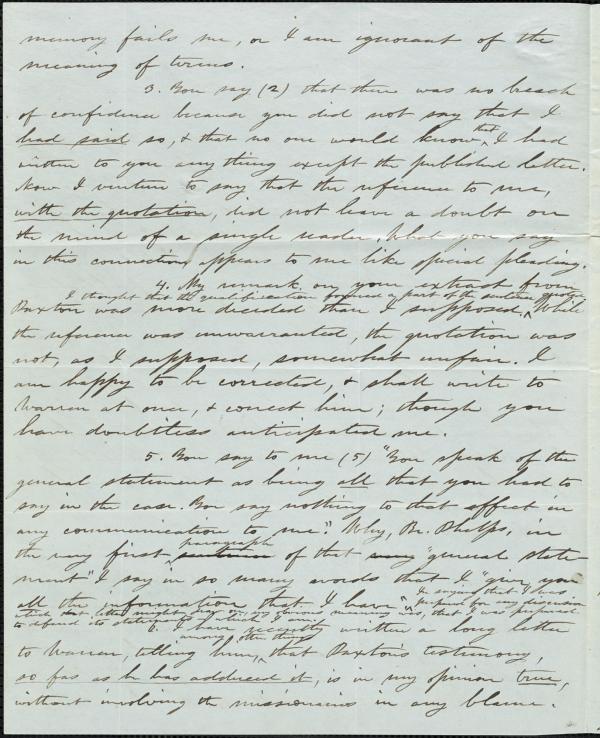 memory fails me, or I am ignorant of the
meaning of terms.
3. You say (2) that there was no breach
of confidence because you did not say that I
had said so, & that no one would know that I had
written to you any thing except the published letter.
Now I venture to say that the reference to me,
with the quotation, did not leave a doubt on
the mind of a single reader. What you say
in this connection, appears to me like special pleading.
4. My remark on your extract from
I thought that the qualification formed a part of the sentence quoted.
Paxton was more decided than I supposed. While
the reference was unwarranted, the quotation was
not, as I supposed, somewhat unfair. I
am happy to be corrected, & shall write to
Warren at once, & correct him; though you
have doubtless anticipated me.
5. You say to me (5) "You speak of the
general statement as being all that you had to
say in the case. You say nothing to that effect in
any communication to me." Why, Br. Phelps, in
the very first paragraph of that "general state
ment" I say in so many words that I "give you
all the information that I have"
In saying that I was
prepared for any discussion
which might arise, my obvious meaning was, that I was prepared
to defend its statements, which I am.
6. I have recently written a long letter
among other things
to Warren, telling him, that Paxton's testimony,
so far as he has adduced it, is in my opinion true,
without involving the missionaries in any blame.